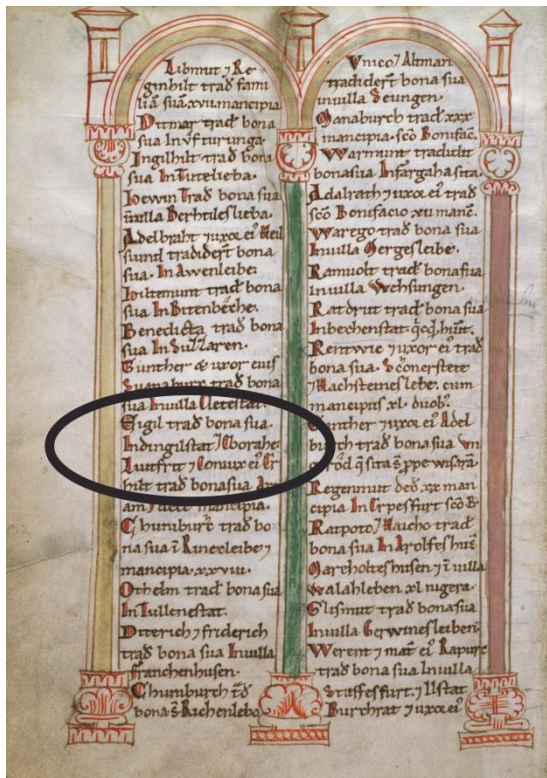 Libmut ⁊ Re
ginhilt trad fami
liā suā.xvi.mancipia.
Ditmar trad bona
sua In vfturunga.
Ingilhilt trad bona
sua In Tutelieba.
bewin Trad bona sua
Berhtlesleba.
Adelbraht ⁊ uxor ei' Heil
siund tradidert bona
sua. In Awenleibe.
hiltemunt trad bona
sua In Bitenbeche.
Benedicta trad bona
sua In Sullaren.
Gunther & uxor eius
trad bona
sua Inuilla
Sigil trad bona sua.
Indingilstat ⁊ Cborahe.
Liutfrit ⁊ Coniux ei' Er
hilt trad bona sua
mancipia.
Chuniburc trad bo
na sua ī Rinecleibe ⁊
mancipia.xxviii.
Othelm trad bona sua
In Tullenestat.
Diterich ⁊ friderich
trad bona sua Inuilla
franchenhusen.
Chuniburch
bona Richenlebo
Vnico ⁊ Altman
tradidert bona sua
inuilla Seungen.
Manaburch trad xxx
mancipia. sco Bonifac.
Warmunt tradidit
bona sua Infargaha sita
Adalrath ⁊ uxor ei' trad
sco Bonifacio xv manc.
Warego trad bona sua
Inuilla Gergesleibe.
Ramuolt trad bona sua
Inuilla Wehsungen.
Ratdrut trad bona sua
Inbechenstat
Rentwic ⁊ uxor ei' trad
bona sua. Sconerstete
⁊ Hachsteineslebe. cum
mancipiis xl. duob'.
Gunther ⁊ uxor ei' Adel
burch trad bona sua
sita
Regenmut ded xx man
cipia In Erpesfurt sco B.
Ratpoto ⁊ Haicho trad
bona sua In Arolfeshus
Marcholteshusen ⁊ ī uilla
Walahleben. xl iugera.
Glismut trad bona sua
Inuilla Gerwinesleiben.
Werent ⁊ mat ei' Rapure
trad bona sua Inuilla
Stuffesfurt. ⁊ Ilstat
Burchrat ⁊ uxor ei'